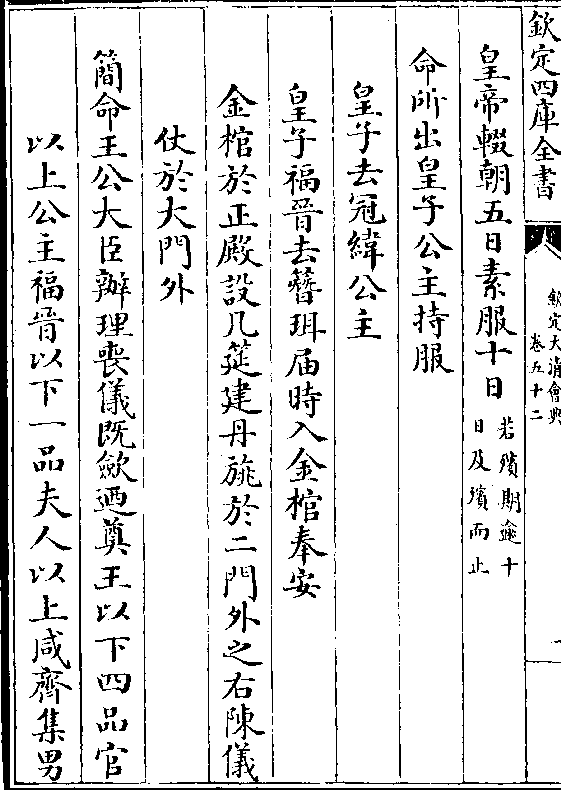 欽定四庫全書
欽定大清會典
卷五十二
一
皇帝輟朝五日素服十日若殯期逾十
日及殯而止
命所出皇子公主持服
皇子去冠緯公主
皇子福晉去簪珥届時入金棺奉安
金棺於正殿設几筵建丹旐於二門外之右陳儀
仗於大門外
簡命王公大臣辦理喪儀既歛廼奠王以下四品官
以上公主福晉以下一品夫人以上咸齊集男